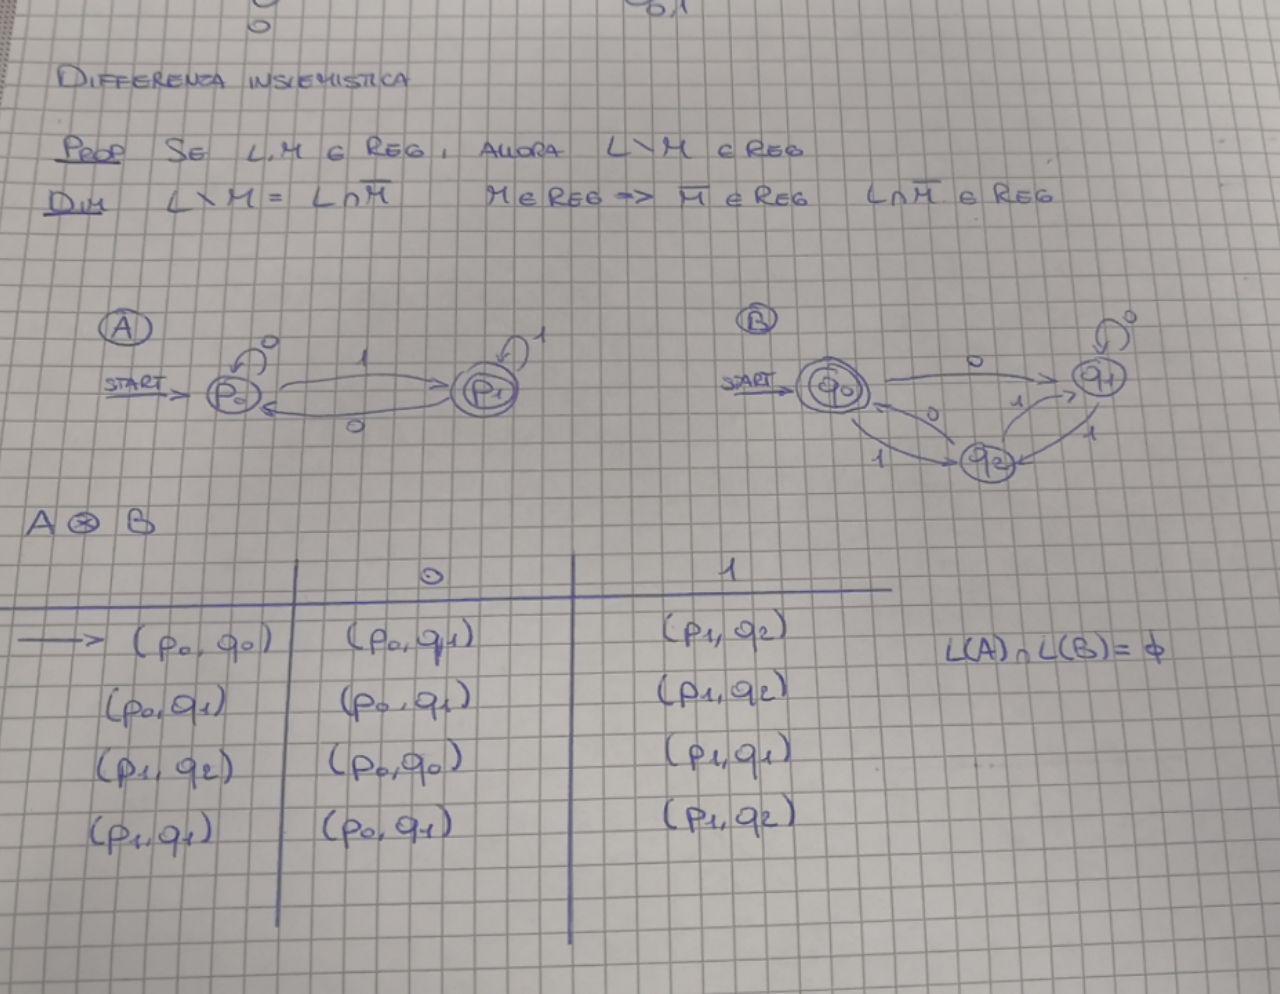 0
0,1
DIFFERENZA INSIEMISTICA
PROP SE L,M ∈ REG, ALLORA L\M ∈ REG
DIM L\M = L∩M̅ M ∈ REG => M̅ ∈ REG L∩M̅ ∈ REG
A
START p0 0 1 0 p1 1
B
START q0 0 q1 0 1 0 q2 1 1
A ⊗ B
0 1
→ (p0, q0) (p0, q1) (p1, q2)
L(A) ∩ L(B) = ϕ
(p0, q1) (p0, q1) (p1, q2)
(p1, q2) (p0, q0) (p1, q1)
(p1, q1) (p0, q1) (p1, q2)